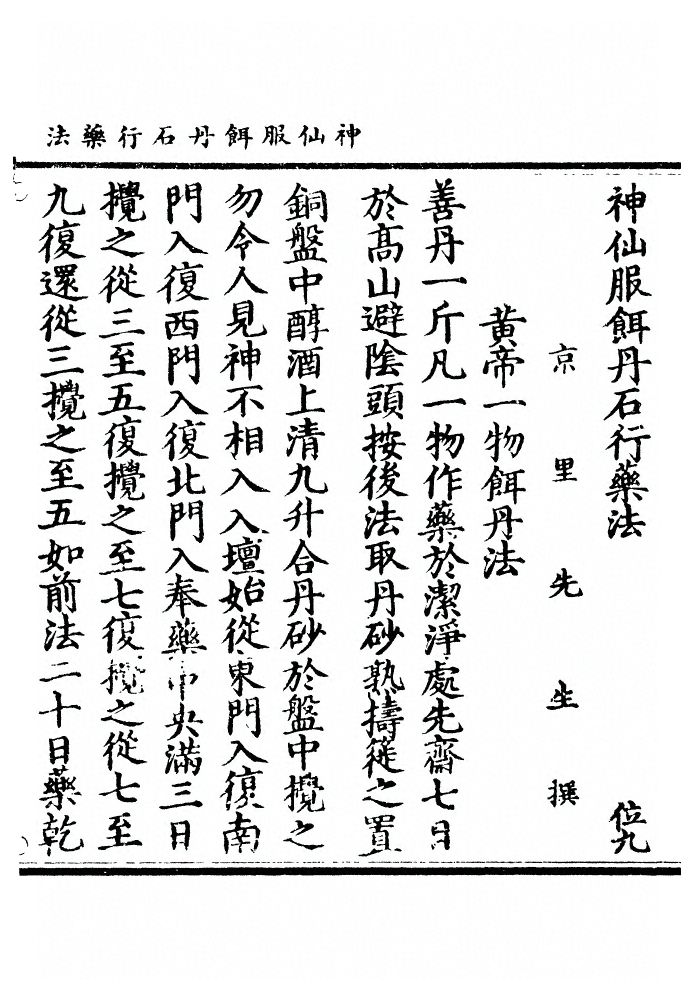 神仙服餌丹石行藥法
神仙服餌丹石行藥法 位九
京里先生撰
黃帝一物餌丹法
善丹一斤凡一物作藥於潔淨處先齋七日
於高山避陰頭按後法取丹砂熟擣篵之置
銅盤中醇酒上清九升合丹砂於盤中攪之
勿令人見神不相入入壇始從東門入復南
門入復西門入復北門入奉藥中央滿三日
攪之從三至五復攪之至七復攪之從七至
九復還從三攪之至五如前法二十日藥乾